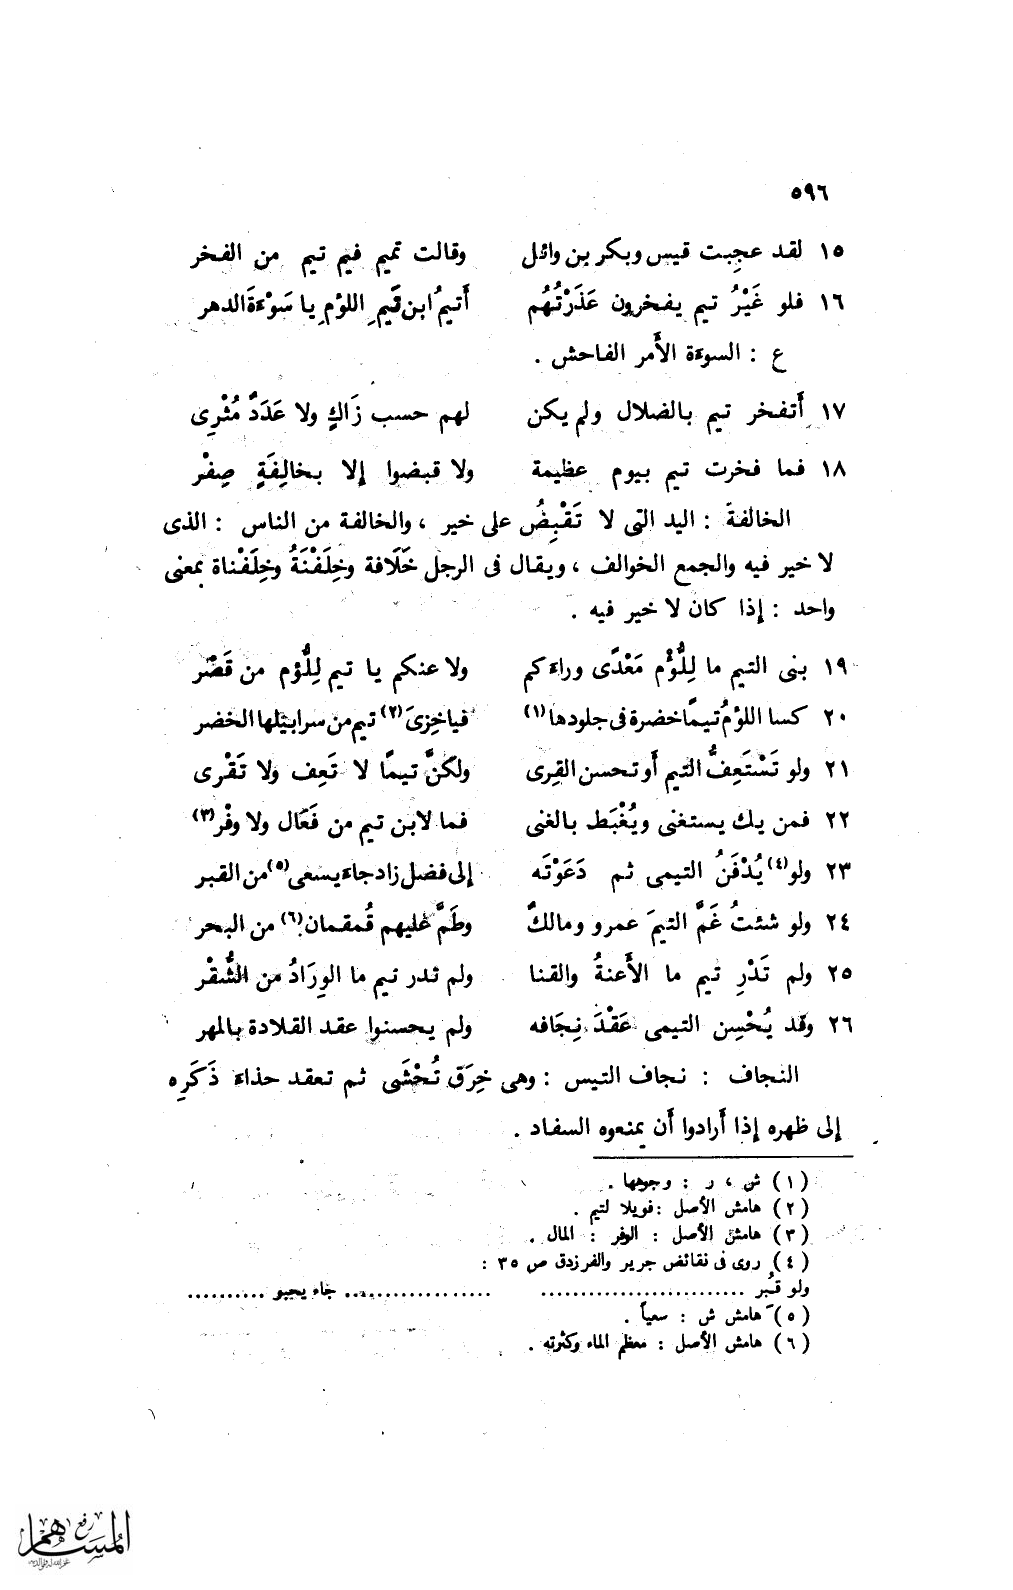 ٥٩٦
١٥ لقد عجِبت قيس وبكر بن وائل وقالت تميم فيم تيم من الفخر
١٦ فلو غَيْرُ تيم يفخرون عَذَرْتُهُم أَتيمُ ابن قَيمِ اللؤم يا سَوْءَةَ الدهر
ع : السوءة الأَمر الفاحش .
١٧ أَتفخر تيم بالضلال ولم يكن لهم حسب زَاكٍ ولا عَدَدٌ مُثْرِى
١٨ فما فخرت تيم بيوم عظيمة ولا قبضوا إلا بخالِفَةٍ صِفْر
الخالفة : اليد التى لا تَقْبِضُ على خير ، والخالفة من الناس : الذى
لا خير فيه والجمع الخوالف ، ويقال فى الرجل خَلَافة وخِلَفْنَةُ وخِلَفْناة بمعنى
واحد : إذا كان لا خير فيه .
١٩ بنى التيم ما لِلُّؤْم مَعْدًى وراءكم ولا عنكم يا تيم لِلُّؤم من قَصْر
٢٠ كسا اللؤمُ تيمًا خضرة فى جلودها (١) فياخِزىَ (٢) تيم من سرابيلها الخضر
٢١ ولو تَسْتَعِفُّ التيم أَو تحسن القِرى ولكنَّ تيمًا لا تَعِف ولا تَقْرى
٢٢ فمن يك يستغنى ويُغْبَط بالغنى فما لابن تيم من فَعَال ولا وفْر (٣)
٢٣ ولو (٤) يُدْفَنُ التيمى ثم دَعَوْتَه إلى فضل زاد جاء يسعى (٥) من القبر
٢٤ ولو شئتُ غَمَّ التيمَ عمرو ومالكٌ وطَمَّ عليهم قُمقمان (٦) من البحر
٢٥ ولم تَدْرِ تيم ما الأَعنةُ والقنا ولم تدر تيم ما الوِرَادُ من الشُّقْر
٢٦ وقد يُحْسِن التيمى عَقْدَ نِجَافه ولم يحسنوا عقد القلادة بالمهر
النجاف : نجاف التيس : وهى خِرَق تُحْشَى ثم تعقد حذاء ذَكَرِه
إلى ظهره إذا أَرادوا أَن يمنعوه السفاد .
(١) ش ، ر : وجوهها .
(٢) هامش الأصل : فويلا لتيم .
(٣) هامش الأصل : الوفر : المال .
(٤) روى فى نقائض جرير والفرزدق ص ٣٥ :
ولو قُبر .......................... ................. جاء يحبو ..........
(٥) هامش ش : سعياً .
(٦) هامش الأصل : معظم الماء وكثرته .
رفع
المساهم